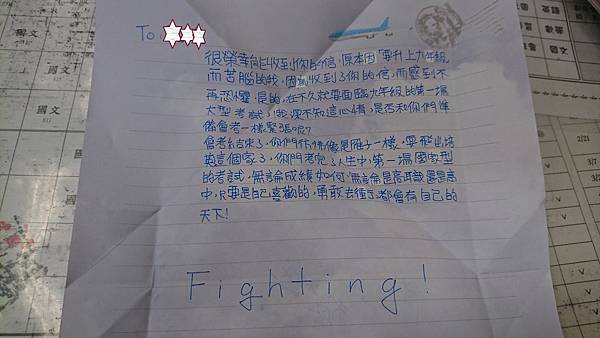 To
很榮幸能收到你的信,原本因「要升上九年級」
而苦腦的我,因為收到了你的信,而感到不
再恐懼,是的,在不久就要面臨九年級的第一場
大型考試,我還不知這心情,是否和你們準
備會考一樣緊張呢?
會考結束了,你們彷彿像是雁子一樣,要飛出培
英這個家了,你們考完了人生中,第一場國家型
的考試,無論成績如何,無論是高職還是高
中,只要是自己喜歡的,勇敢去衝了,都會有自己的
天下!
Fighting!
國文
國文
國文
2/21
3/7
3/7